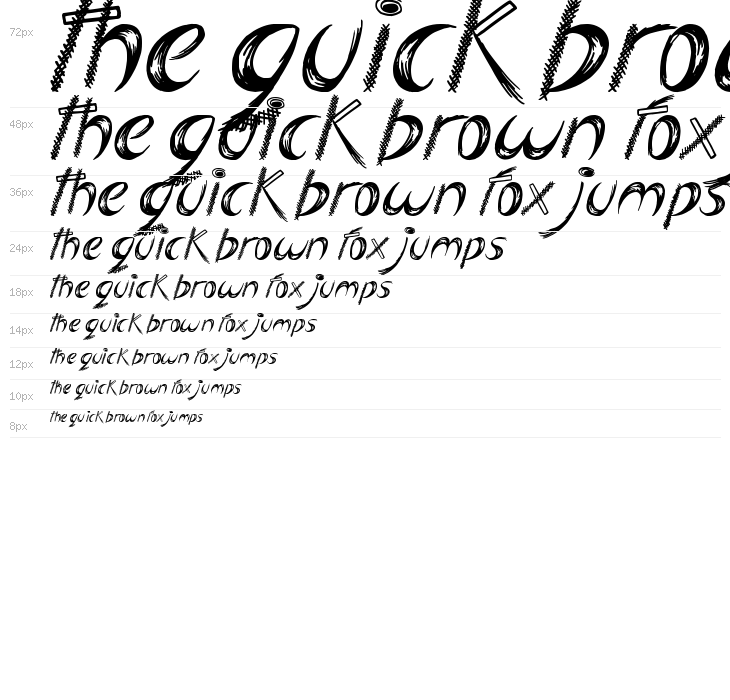 72px the quick bro
48px the quick brown fox
36px the quick brown fox jumps
24px the quick brown fox jumps
18px the quick brown fox jumps
14px the quick brown fox jumps
12px the quick brown fox jumps
10px the quick brown fox jumps
8px the quick brown fox jumps